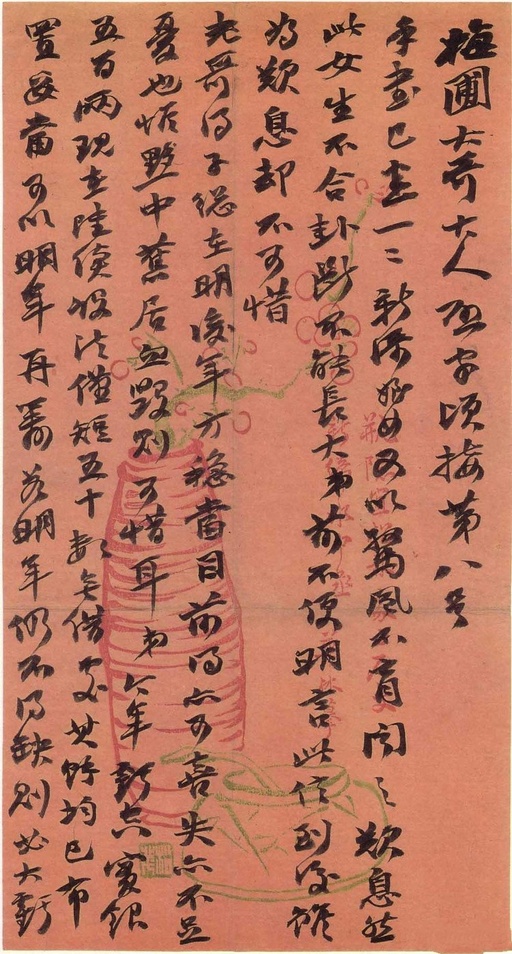 梅圃大哥大人頃接第八号
手書已悉一二新添姪女又以驚風不育聞之歎息然
此女生不合卦斷不能長大弟前不便明言此信到後雖
為歎息却不可惜
老哥得子總在明後年方穩當目前得亦可喜失亦不足
憂也惟黔中舊居毀則可惜耳弟今年虧空實銀
五百兩現在陸續設法僅短五十無借處其餘均已布
置妥當可以明年再籌若明年仍不得缺則必大虧